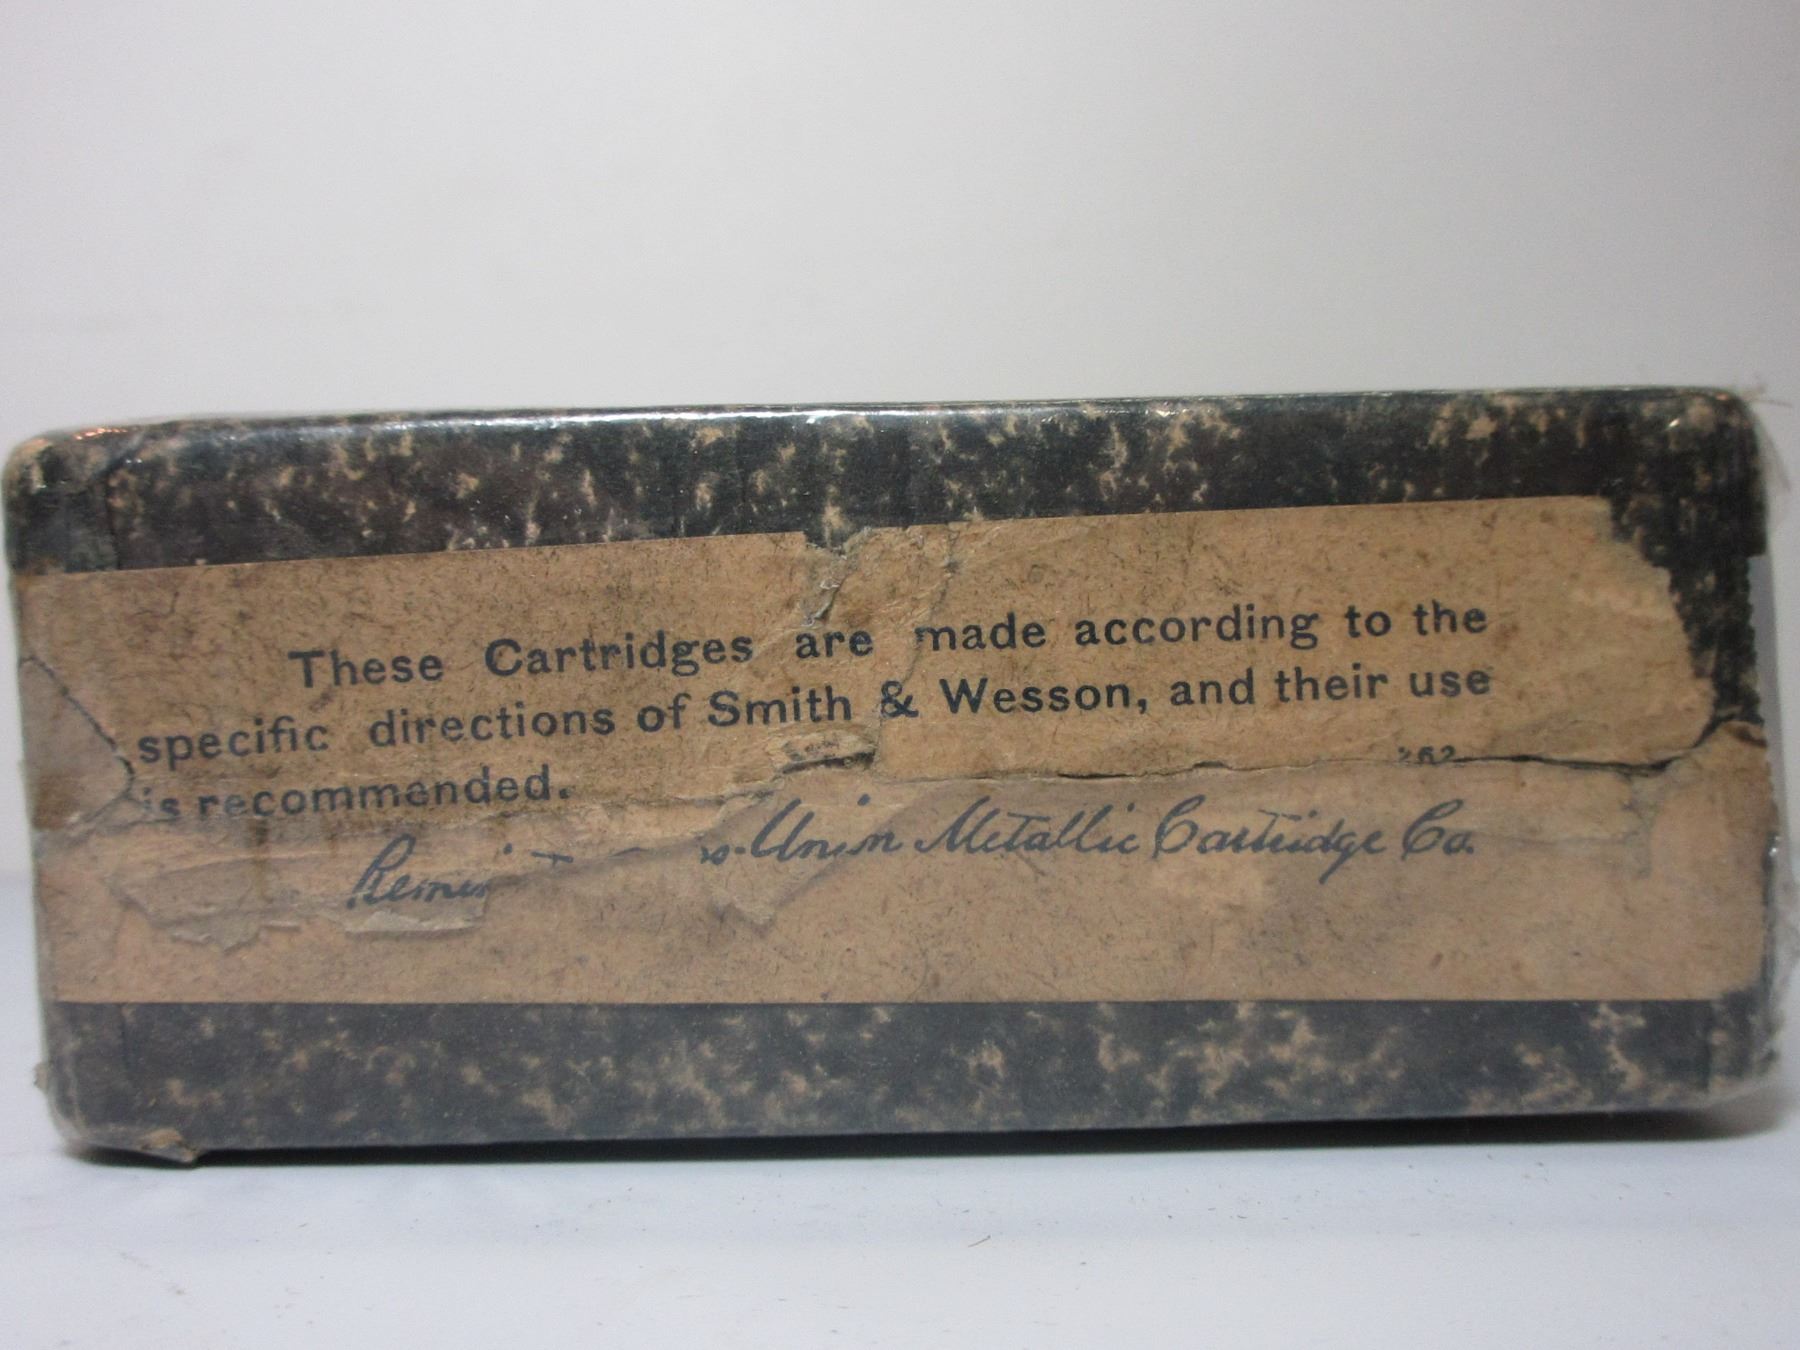 These Cartridges are made according to the
specific directions of Smith & Wesson, and their use
is recommended.
262
Union Metallic Cartridge Co.